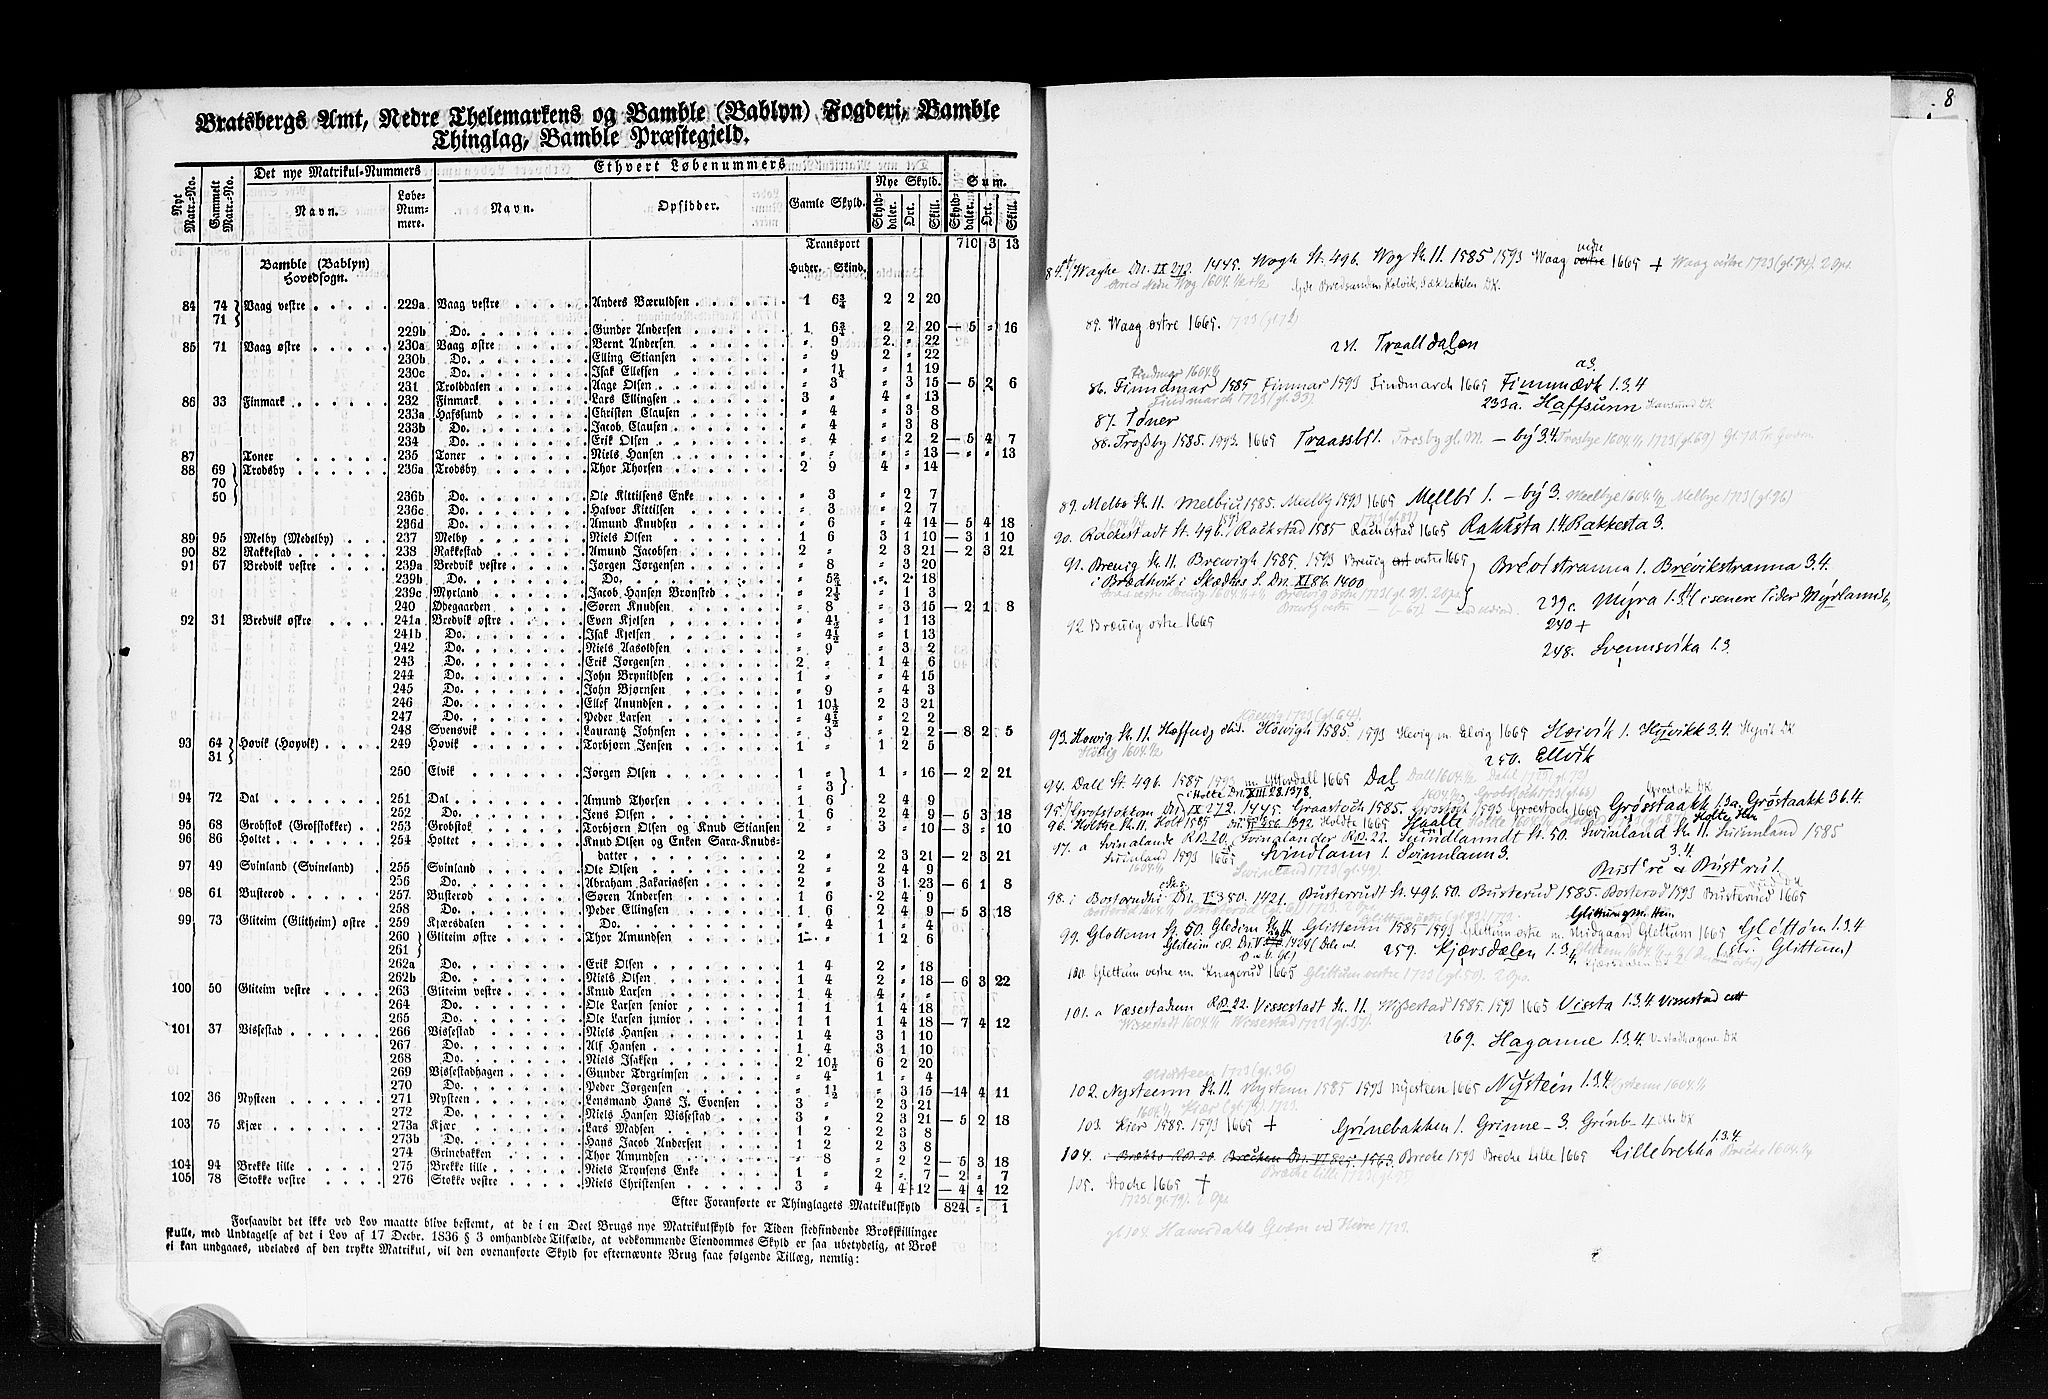 Bratsbergs Amt, Nedre Thelemarkens og Bamble (Bablyn) Fogderi, Bamble
Thinglag, Bamble Præstegjeld.
Nyt Matr.-No. Gammelt Matr.-No. Det nye Matrikul-Nummers Ethvert Løbenummers Sum.
Navn. Løbe-Nummere. Navn. Opsidder. Gamle Skyld. Nye Skyld.
Skylddaler. Ort. Skill. Skylddaler. Ort. Skill.
Transport 710 3 13
Bamble (Bablyn) Huder. Skind.
Hovedsogn.
84 74 Vaag vestre 229a Vaag vestre Anders Bæruldsen 1 6¾ 2 2 20
71
229b Do. Gunder Andersen 1 6¾ 2 2 20 — 5 " 16
85 71 Vaag østre 230a Vaag østre Bernt Andersen " 9 2 " 22
230b Do. Elling Stiansen " 9 2 " 22
230c Do. Isak Ellefsen " 7½ " 1 19
231 Trolddalen Aage Olsen " 3 " 3 15 — 5 2 6
86 33 Finmark 232 Finmark Lars Ellingsen 3 " 4 " 13
233a Hafssund Christen Clausen " 4 " 3 8
233b Do. Jacob Clausen " 4 " 3 8
234 Do. Erik Olsen " 4 " 2 2 — 5 4 7
87 Toner 235 Toner Niels Hansen " " " " 13 — " " 13
88 69 Trodsby 236a Trodsby Thor Thorsen 2 9 4 " 14
70
50 236b Do. Ole Kittilsens Enke " 3 " 2 7
236c Do. Halvor Kittilsen " 3 " 2 7
236d Do. Amund Knudsen " 6 " 4 14 — 5 4 18
89 95 Melby (Medelby) 237 Melby Niels Olsen 1 6 3 1 10 — 3 1 10
90 82 Rakkestad 238 Rakkestad Amund Jacobsen 2 " 2 3 21 — 2 3 21
91 67 Bredvik vestre 239a Bredvik vestre Jørgen Jørgensen " 8 " 3 20
239b Do. Do. " 5⅔ " 2 18
239c Myrland Jacob Hansen Brønsted " 2⅓ " 1 3
240 Ødegaarden Søren Knudsen " 8 " 3 15 — 2 1 8
92 31 Bredvik østre 241a Bredvik østre Even Kjelsen " 4½ " 1 13
241b Do. Isak Kjelsen " 4½ " 1 13
242 Do. Niels Aasoldsen " 9 " 3 2
243 Do. Erik Jørgensen 2 " 1 4 6
244 Do. John Brynildsen 1 " " 4 15
245 Do. John Bjørnsen " 9 " 4 3
246 Do. Ellef Anundsen 1 10½ 2 3 21
247 Do. Peder Larsen " 4½ " 2 2
248 Svensvik Laurantz Johnsen " 3 " 2 2 — 8 2 5
93 64 Hovik (Høyvik) 249 Hovik Torbjørn Jensen 1 " 1 2 5
31
250 Elvik Jørgen Olsen 1 " 1 " 16 — 2 2 21
3
94 72 Dal 251 Dal Amund Thorsen 1 6 2 4 9
252 Do. Jens Olsen 1 6 2 4 9 — 5 3 18
95 68 Grobstok (Grofstokker) 253 Grobstok Torbjørn Olsen og Knud Stiansen 2 " 3 " 10 — 3 " 10
96 86 Holtet 254 Holtet Knud Olsen og Enken Sara Knuds-
datter 2 " 2 3 21 — 2 3 21
97 49 Svinland (Svineland) 255 Svinland Ole Olsen 2 " 2 4 9
256 Do. Abraham Zakariassen 2 " 3 1 23 — 6 1 8
98 61 Busterød 257 Busterød Søren Andersen 1 6 2 4 9
258 Do. Peder Ellingsen 1 6 2 4 9 — 5 3 18
99 73 Gliteim (Glitheim) østre 259 Kjærsdalen Do. " 4 " 1 " 4
260 Gliteim østre Thor Amundsen 1 " 1 2 6
261
262a Do. Erik Olsen 1 4 2 " 18
262b Do. Niels Olsen 1 4 2 " 18 — 6 3 22
100 50 Gliteim vestre 263 Gliteim vestre Knud Larsen 1 4 4 " "
264 Do. Ole Larsen senior 1 1 1 4 18
265 Do. Ole Larsen junior 1 1 1 4 18 — 7 4 12
101 37 Vissestad 266 Vissestad Niels Hansen 1 4 3 1 10
267 Do. Alf Hansen 1 4 3 1 10
268 Do. Niels Isaksen 2 10½ 6 2 20
269 Vissestadhagen Gunder Torgrimsen " 4 1 " 4
270 Do. Peder Jørgensen " 1½ " 3 15 — 14 4 11
102 36 Nysteen 271 Nysteen Lensmand Hans J. Evensen 3 " 2 3 21
272 Do. Niels Hansen Vissestad 3 " 2 3 21 — 5 2 18
103 75 Kjær 273a Kjær Lars Madsen 1 2 2 3 8
273b Do. Hans Jacob Andersen 1 2 2 3 8
274 Grinebakken Thor Amundsen " 8 " 2 2 — 5 3 18
104 94 Brekke lille 275 Brekke lille Niels Tronsens Enke 1 " 2 " 7 — 2 " 7
105 78 Stokke vestre 276 Stokke vestre Niels Christensen 3 " 4 4 12 — 4 4 12
Efter Foranførte er Thinglagets Matrikulskyld 824 " 1
Forsaavidt det ikke ved Lov maatte blive bestemt, at de i en Deel Brugs nye Matrikulskyld for Tiden stedfindende Brøkskillinger
skulle, med Undtagelse af det i Lov af 17 Decbr. 1836 § 3 omhandlede Tilfælde, at vedkommende Eiendommes Skyld er saa ubetydelig, at Brøk
ei kan undgaaes, udelades af den trykte Matrikul, vil den ovenanførte Skyld for efternævnte Brug faae følgende Tillæg, nemlig:
8
Waghe Dn. IX 272. 1445. Wogh St. 496. Wog Sk. 11. 1585 1593 Waag vestre 1665 + Waag vestre 1723 (gl. 74). 2 Opr.
89. Waag østre 1665. 1723 (gl. 71)
231. Traalldalen
Findmar 1604
86. Finndmar 1585 Finmar 1593 Findmarch 1665 Finnmærk 1.3.4
Findmarch 1723 (gl. 33) 233a. Haffsunn Havsund DK
87. Tøner
88. Troßby 1585. 1593. 1665 Traassbi 1. Trosby gl. M. – bý 3.4.
89. Melbo Sk. 11. Melbiu 1585. Meelby 1593 1665 Mellbi 1. – bý 3. Meelbye 1604 Melbye 1723 (gl. 96)
90. Rackestadt St. 496. Rackstad 1585 Rachestad 1665 Rakksta 1.4. Rakkesta 3.
91. Breuig Sk. 11. Brewigh 1585. 1593 Breuig vestre 1665 Brévistranna 1. Brévikstranna 3.4.
i Brædhvik i Skædhes S. Dn. XI 86. 1400
239c. Mýra 1.3.4 (i senere tider Mýrlandt)
240 +
92 Bræuig østre 1665
248. Svennsvika 1.3.
Høewig 1723 (gl. 64).
93. Høwig Sk. 11. Høwigh 1585. 1593 Høvig m. Elvig 1665 Høivik 1. Høyvikk 3.4. Høyvik DK
250. Ellvik
94. Dall St. 496. 1585 1593 m. Ytterdall 1665 Dal Dall 1604 Dahl 1723 (gl. 72)
95. Grofstokkom Dn. IX 272. 1445. Graastoch 1585. Grostoch 1593 Groestoch 1665 Grøsstaakk 1.3a. Grøstaakk 3 b. 4.
96. Holtte Sk. 11. Holdt 1585 Holdte 1665 Haalte
97. a Svinalande R.D. 20. Svinalandet R.D. 22. Suindlanndt St. 50. Swinland Sk. 11 Suinnland 1585
Svinland 1593 1665 Svindlann 1. Svinnlann 3.
Svinland 1723 (gl. 49).
98. i Bosterudhi Dn. 350. 1421. Busterrudt St. 496. 50. Busterud 1585. Bosterød 1593 Busterud 1665
99. Glottenn St. 50. Gledem Sk. 11 Glittenn 1585 1593 Glettum østre m. Midgaard Glettum 1665 Gléttøm 1.3.4
259. Kjærsdælen 1.3.4 (str. Glittum)
100. Glettum vestre m. Knagerud 1665 Glittum vestre 1723 (gl. 50). 2 Opr.
101. a Væsestadum R.D. 22. Vissestadt Sk. 11. Wißestad 1585. 1593 1665 Vissta 1.3.4
Wissestadt 1604 Wissestad 1723 (gl. 37).
269. Haganne 1.3.4.
Niosteen 1723 (gl. 36)
102. Nysteenn Sk. 11. Nystenn 1585 1593 Nysteen 1665 Nýstein 1.3.4
1604 Kiær (gl. 75) 1723.
103. Kier 1585. 1593 1665 + Grinebakken 1. Grinne– 3. Grinb– 4
104. i Brække R.D. 20. Brechen Dn. VI 825. 1563. Brecke 1593 Brecke Lille 1665 Lillebrekka 1.3.4.
Bræcke Lille 1723 (gl. 95)
105. Stocke 1665 +
1723 (gl. 79). 2 Opr
gl. 104. Hawerdahls Qværn ved Kivre 1723.